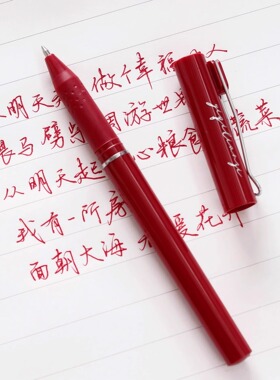 从明天 做个幸福 人
喂马 劈 周游世
从明天起 心粮食 蔬菜
我有一所房
面朝大海 暖花开